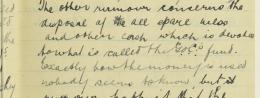 The other rumour concerns the
disposal of the all spare
and other cash which is devoted
to what is called the fund.
Exactly how the money is used
nobody seems to know, but it